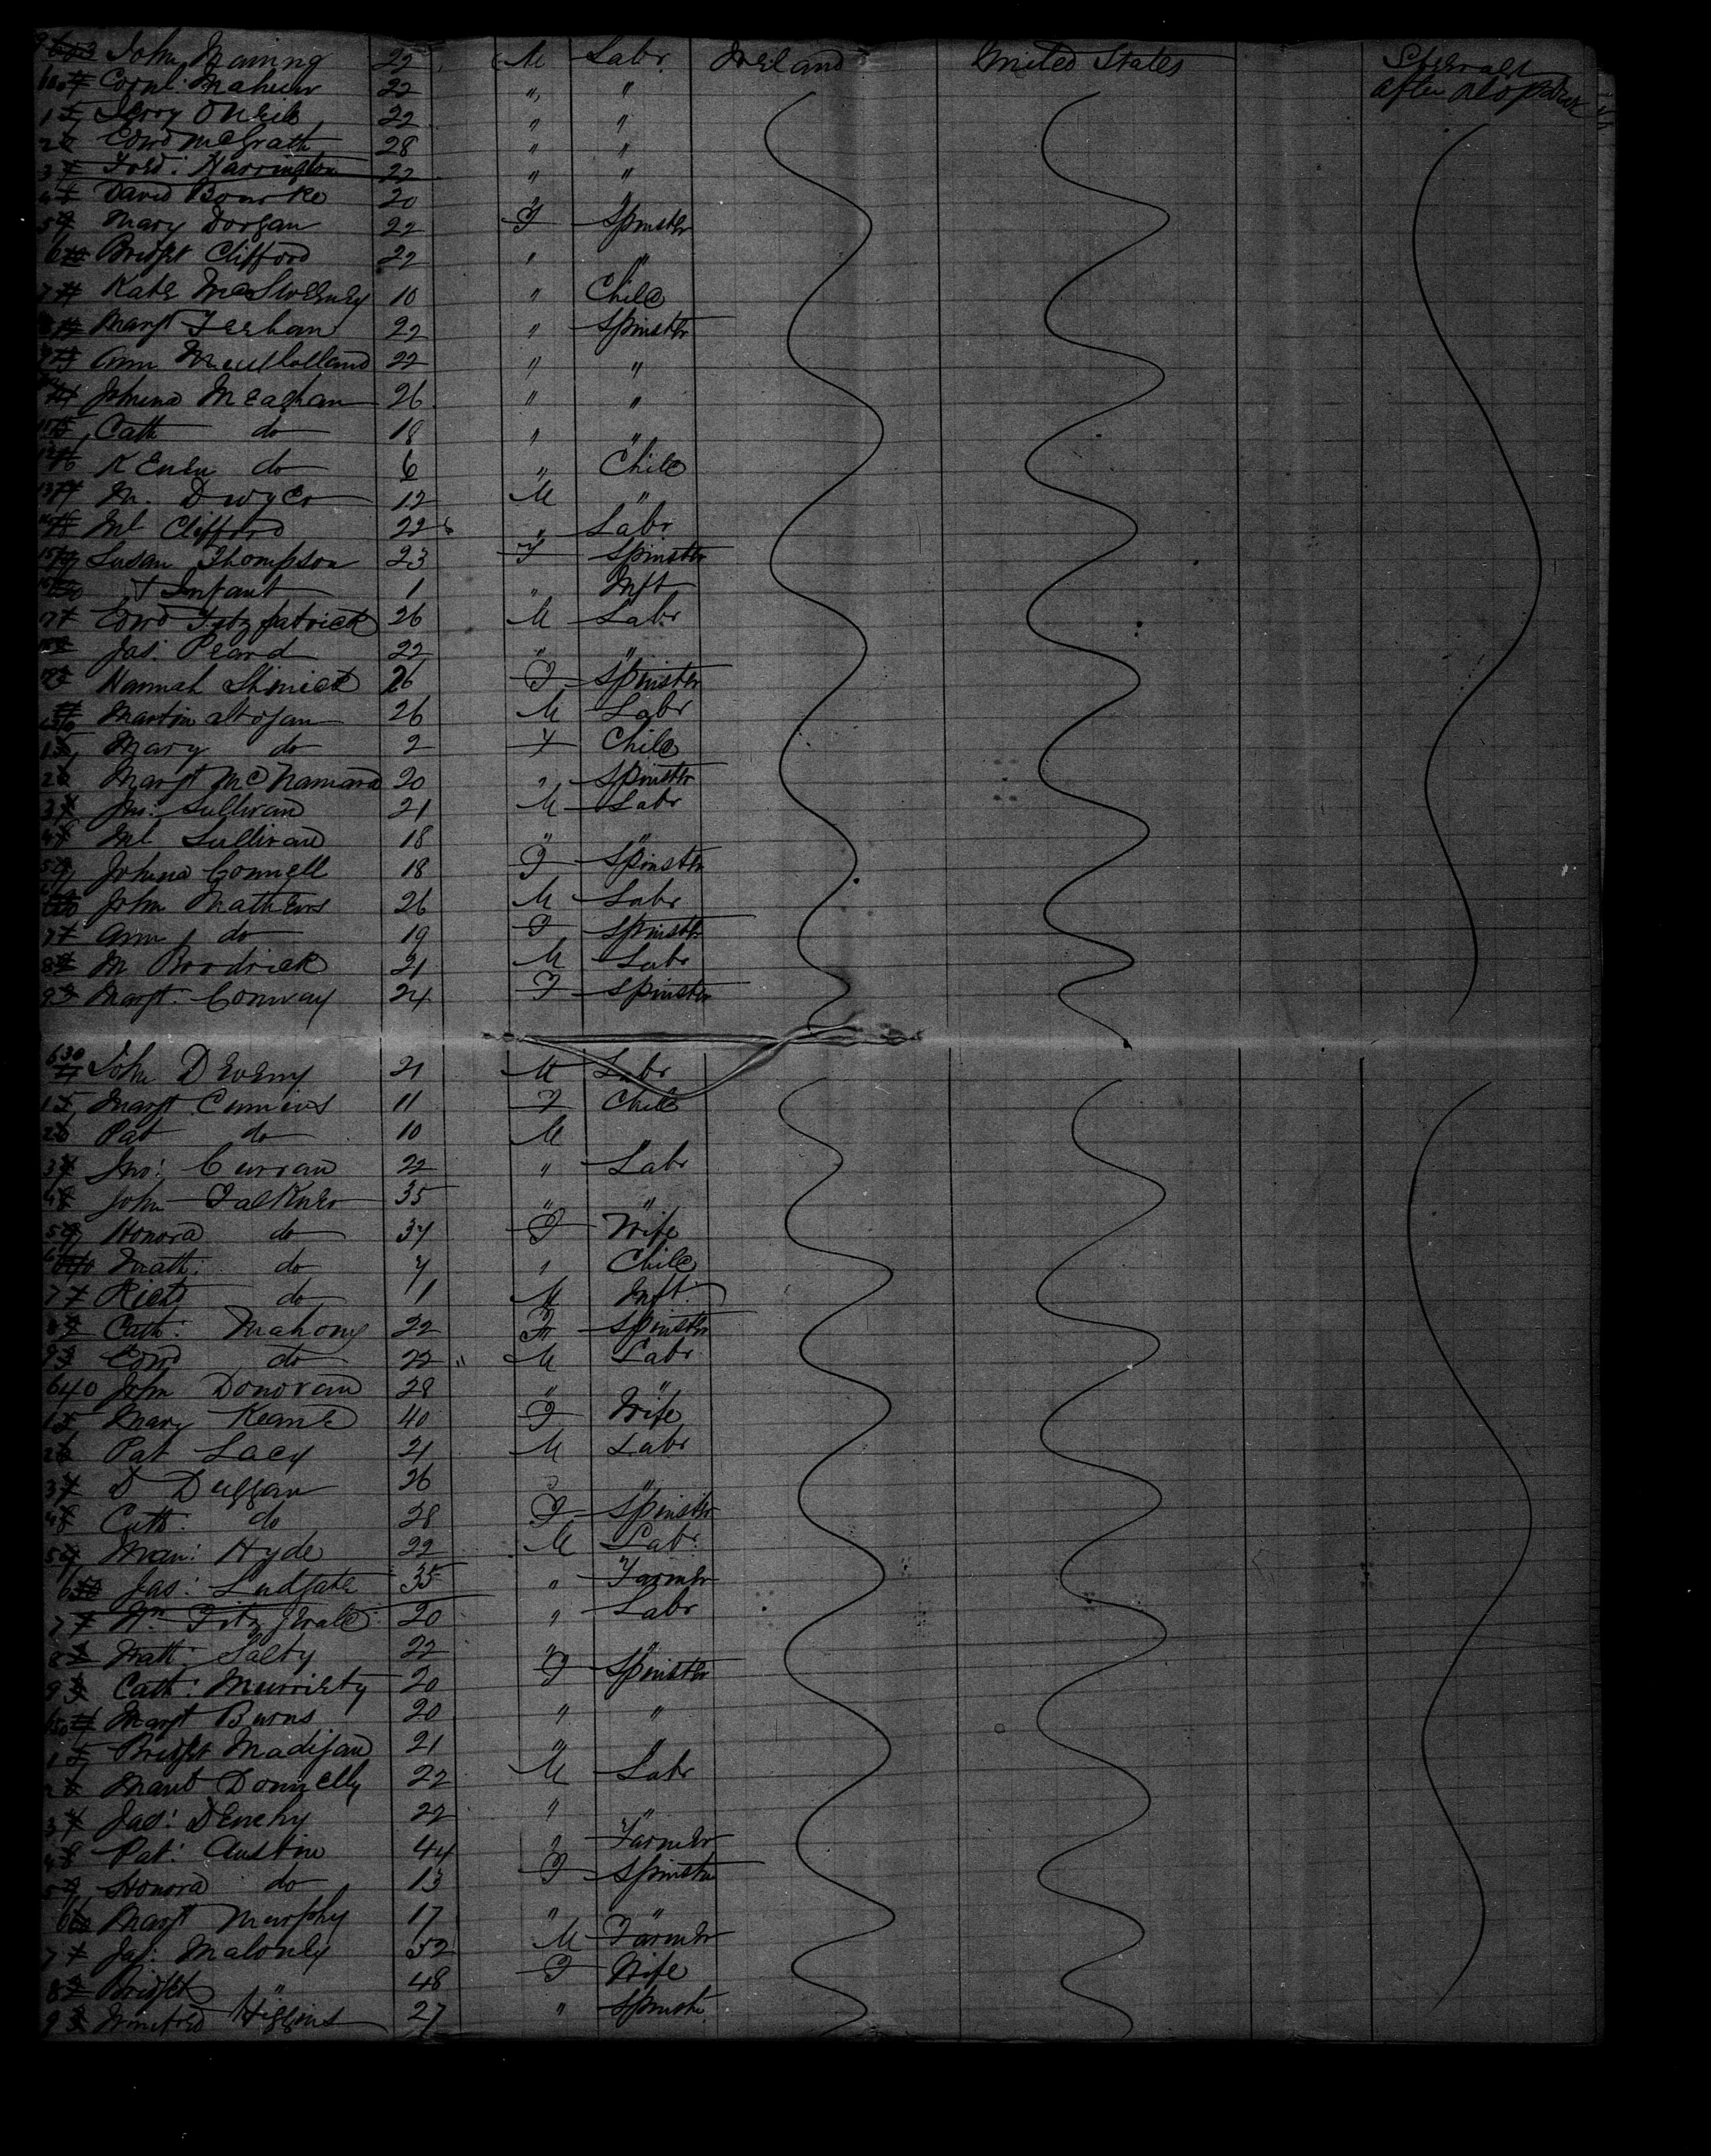 John Naning 22 M Labr Ireland United States Steerage
Cornl: Maheir 22 " " after Deck
Jerry O Neil 22 " "
Edwd McGrath 28 " "
Harrington 22 " "
David Bourke 20 " "
Mary Dorgan 22 F Spinster
Bridget Clifford 22 " "
Kate McSweeney 10 " Child
Margt Feehan 22 " Spinster
Ann Mulholland 22 " "
Johana Meaghan 26 " "
Cath do 18 " "
do 6 " Child
M. Dwyer 12 M "
Ml Clifford 22 " Labr
Susan Thompson 23 F Spinster
+ Infant 1 " Inft
Edwd Fitzpatrick 26 M Labr
Jas: Peard 22 " "
Hannah 26 F Spinster
Martin 26 M Labr
Mary do 2 F Child
Margt McNamara 20 " Spinster
Jno: Sullivan 21 M Labr
Ml Sullivan 18 " "
Johana Connell 18 F Spinster
John Mathews 26 M Labr
Ann do 19 F Spinster
M Brodrick 21 M Labr
Margt: Conway 24 F Spinster
630 John Deveny 21 M Labr
1 Margt Cumins 11 F Child
2 Pat do 10 M "
3 Jno: Curran 22 " Labr
4 John Falkner 35 " "
5 Honora do 34 F Wife
6 Math: do 7 " Child
7 Richd do 1 M Inft.
8 Cath: Mahony 22 F Spinster
9 Edwd do 22 " M Labr
640 John Donovan 28 " "
1 Mary Keane 40 F Wife
2 Pat Lacy 21 M Labr
3 D Duggan 26 " "
4 Cath: do 28 F Spinster
5 Hyde 22 M Labr
6 Jas: Ludgate 35 " Farmer
7 Wm Fitzgerald 20 " Labr
8 Matt: Salty 22 " "
9 Cath: Murriety 20 F Spinster
650 Margt Burns 20 " "
1 Bridget Madigan 21 " "
2 Donnelly 22 M Labr
3 Jas: Denehy 22 " "
4 Pat: Austin 44 " Farmer
5 Honora do 13 F Spinster
6 Margt Murphy 17 " "
7 Jas: Maloney 52 M Farmer
8 Bridget " 48 F Wife
9 Winifred Higgins 27 " Spinster